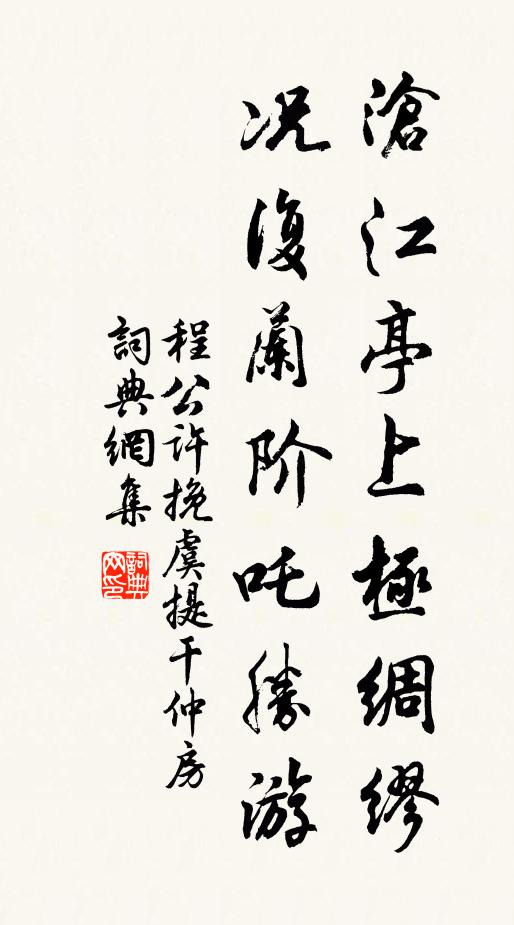 滄江亭上極綢繆
况復蘭阶吒勝游
程公许挽虞提干仲房
詞典網集
詞典網印